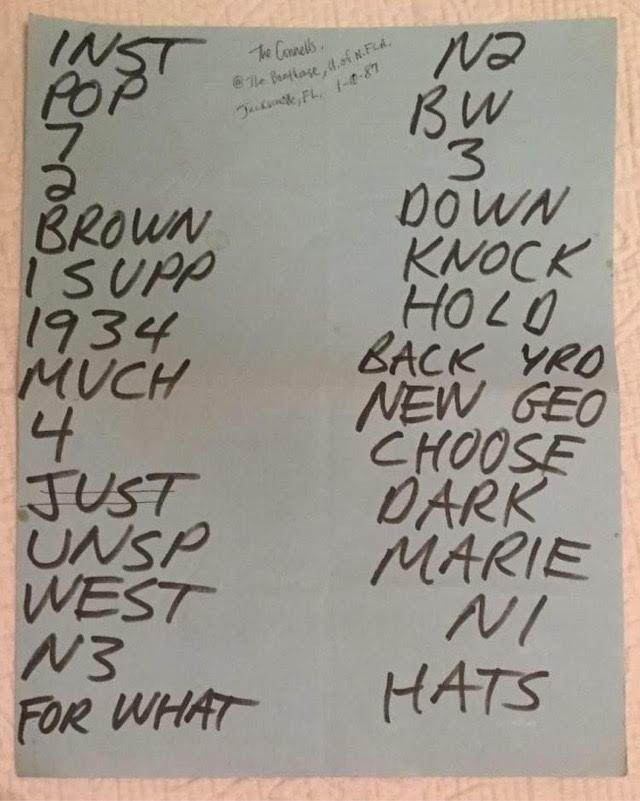 INST
POP
7
2
BROWN
I SUPP
1934
MUCH
4
JUST
UNSP
WEST
N3
FOR WHAT
The Connells.
@ The Boathouse, U. of N. FLA.
Jacksonville, FL. 1-10-87
N2
BW
3
DOWN
KNOCK
HOLD
BACK YRD
NEW GEO
CHOOSE
DARK
MARIE
N1
HATS